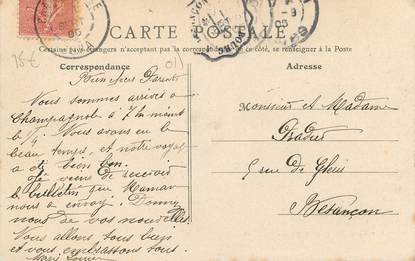 CARTE POSTALE
Certains pays étrangers n'acceptant pas la correspondance de ce côté, se renseigner à la Poste
Correspondance
Adresse
15€
01)
Bien chers Parents
Nous sommes arrivés à
Champagnole à 7h moins
1/4. Vous avons eu le
beau temps, et notre voyage
a été bien bon.
Je viens de recevoir
le bulletin que Maman
nous a envoyé. Donnez
nous de vos nouvelles.
Nous allons tous bien
et vous embrassons tous.
Marie Louise
Monsieur et Madame
5 rue de
Besançon